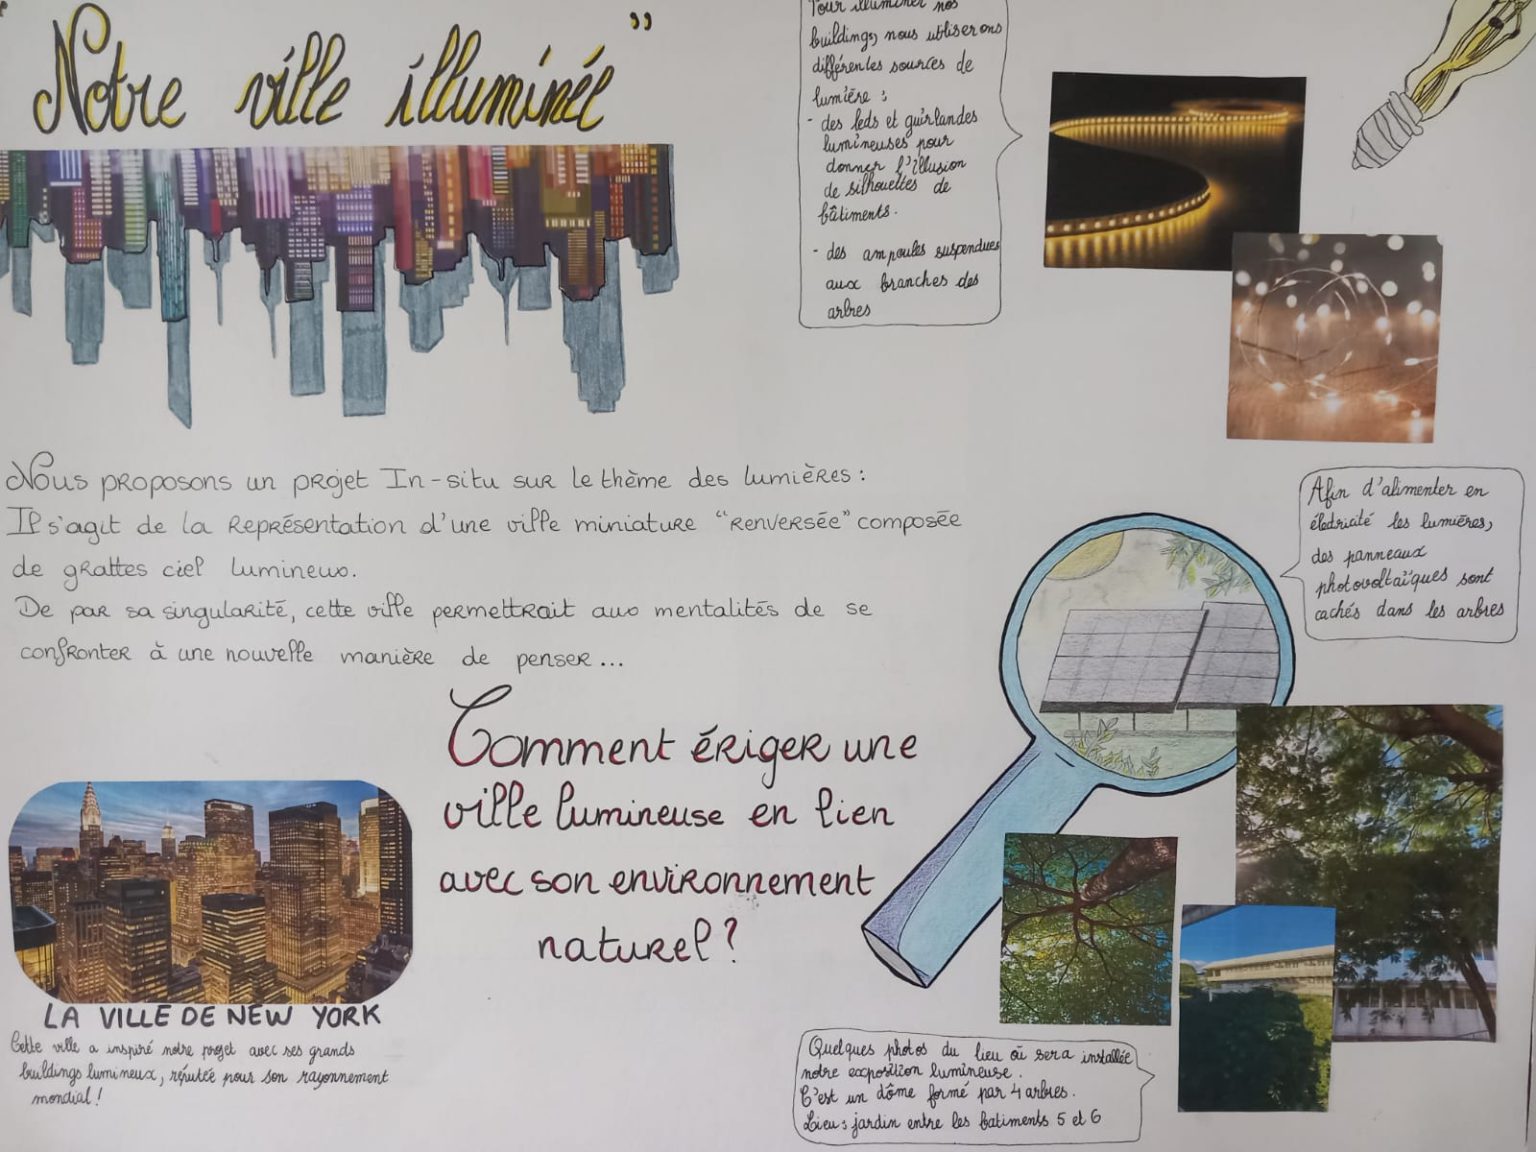 "Notre ville illuminée"
Pour illuminer nos
buildings, nous utiliserons
différentes sources de
lumière :
- des leds et guirlandes
lumineuses pour
donner l'illusion
de silhouettes de
bâtiments.
- des ampoules suspendues
aux branches des
arbres
Nous proposons un projet In-situ sur le thème des lumières :
Il s'agit de la représentation d'une ville miniature "renversée" composée
de grattes ciel lumineux.
De par sa singularité, cette ville permettrait aux mentalités de se
confronter à une nouvelle manière de penser...
Afin d'alimenter en
électricité les lumières,
des panneaux
photovoltaïques sont
cachés dans les arbres
Comment ériger une
ville lumineuse en lien
avec son environnement
naturel ?
LA VILLE DE NEW YORK
Cette ville a inspiré notre projet avec ses grands
buildings lumineux, réputée pour son rayonnement
mondial !
Quelques photos du lieu où sera installée
notre exposition lumineuse.
C'est un dôme formé par 4 arbres.
Lieu : jardin entre les batiments 5 et 6